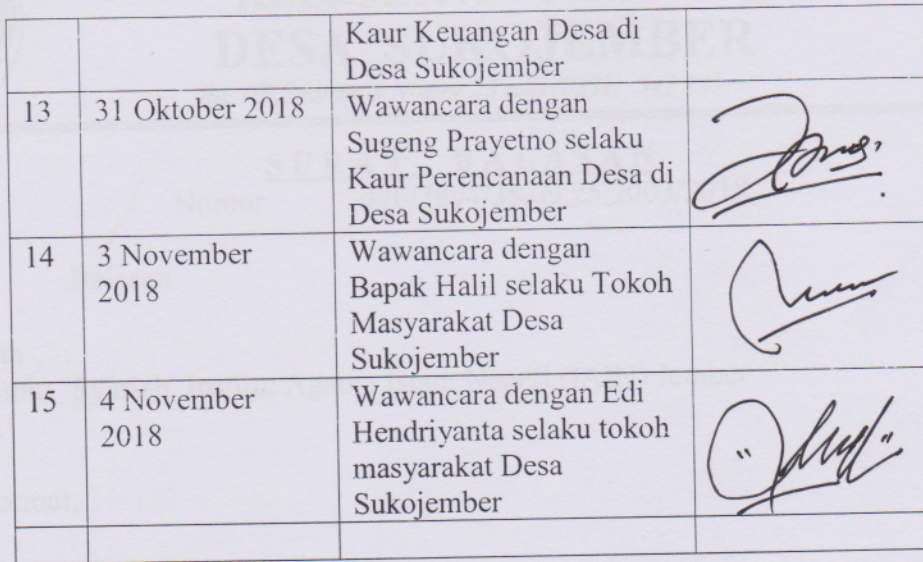 Kaur Keuangan Desa di
Desa Sukojember
13 31 Oktober 2018 Wawancara dengan
Sugeng Prayetno selaku
Kaur Perencanaan Desa di
Desa Sukojember
14 3 November Wawancara dengan
2018 Bapak Halil selaku Tokoh
Masyarakat Desa
Sukojember
15 4 November Wawancara dengan Edi
2018 Hendriyanta selaku tokoh
masyarakat Desa
Sukojember